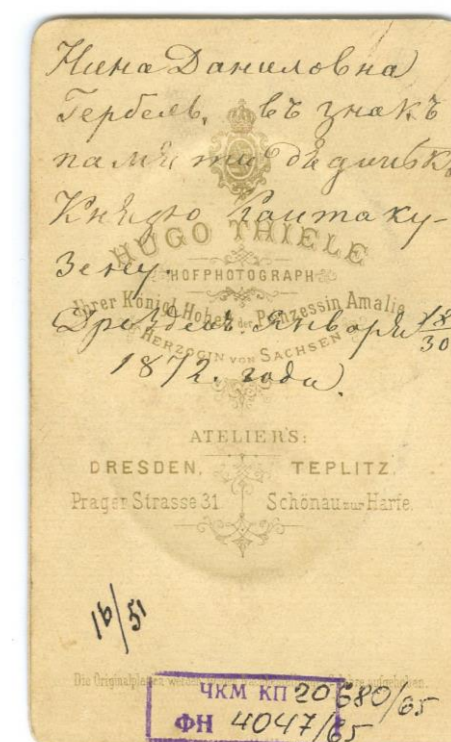 Нина Даниловна
Гербель, въ знакъ
памяти дѣдушкѣ
Князю Кантаку-
зену.
Дрезденъ. Января 18/30
1872. года.
HUGO THIELE
HOFPHOTOGRAPH
Ihrer Königl. Hoheit der Prinzessin Amalie
HERZOGIN VON SACHSEN
ATELIERS:
DRESDEN, TEPLITZ,
Prager Strasse 31 Schönau zur Harfe.
16/51
Die Originalplatten werden aufgehoben.
ЧКМ КП 20680/65
ФН 4047/65